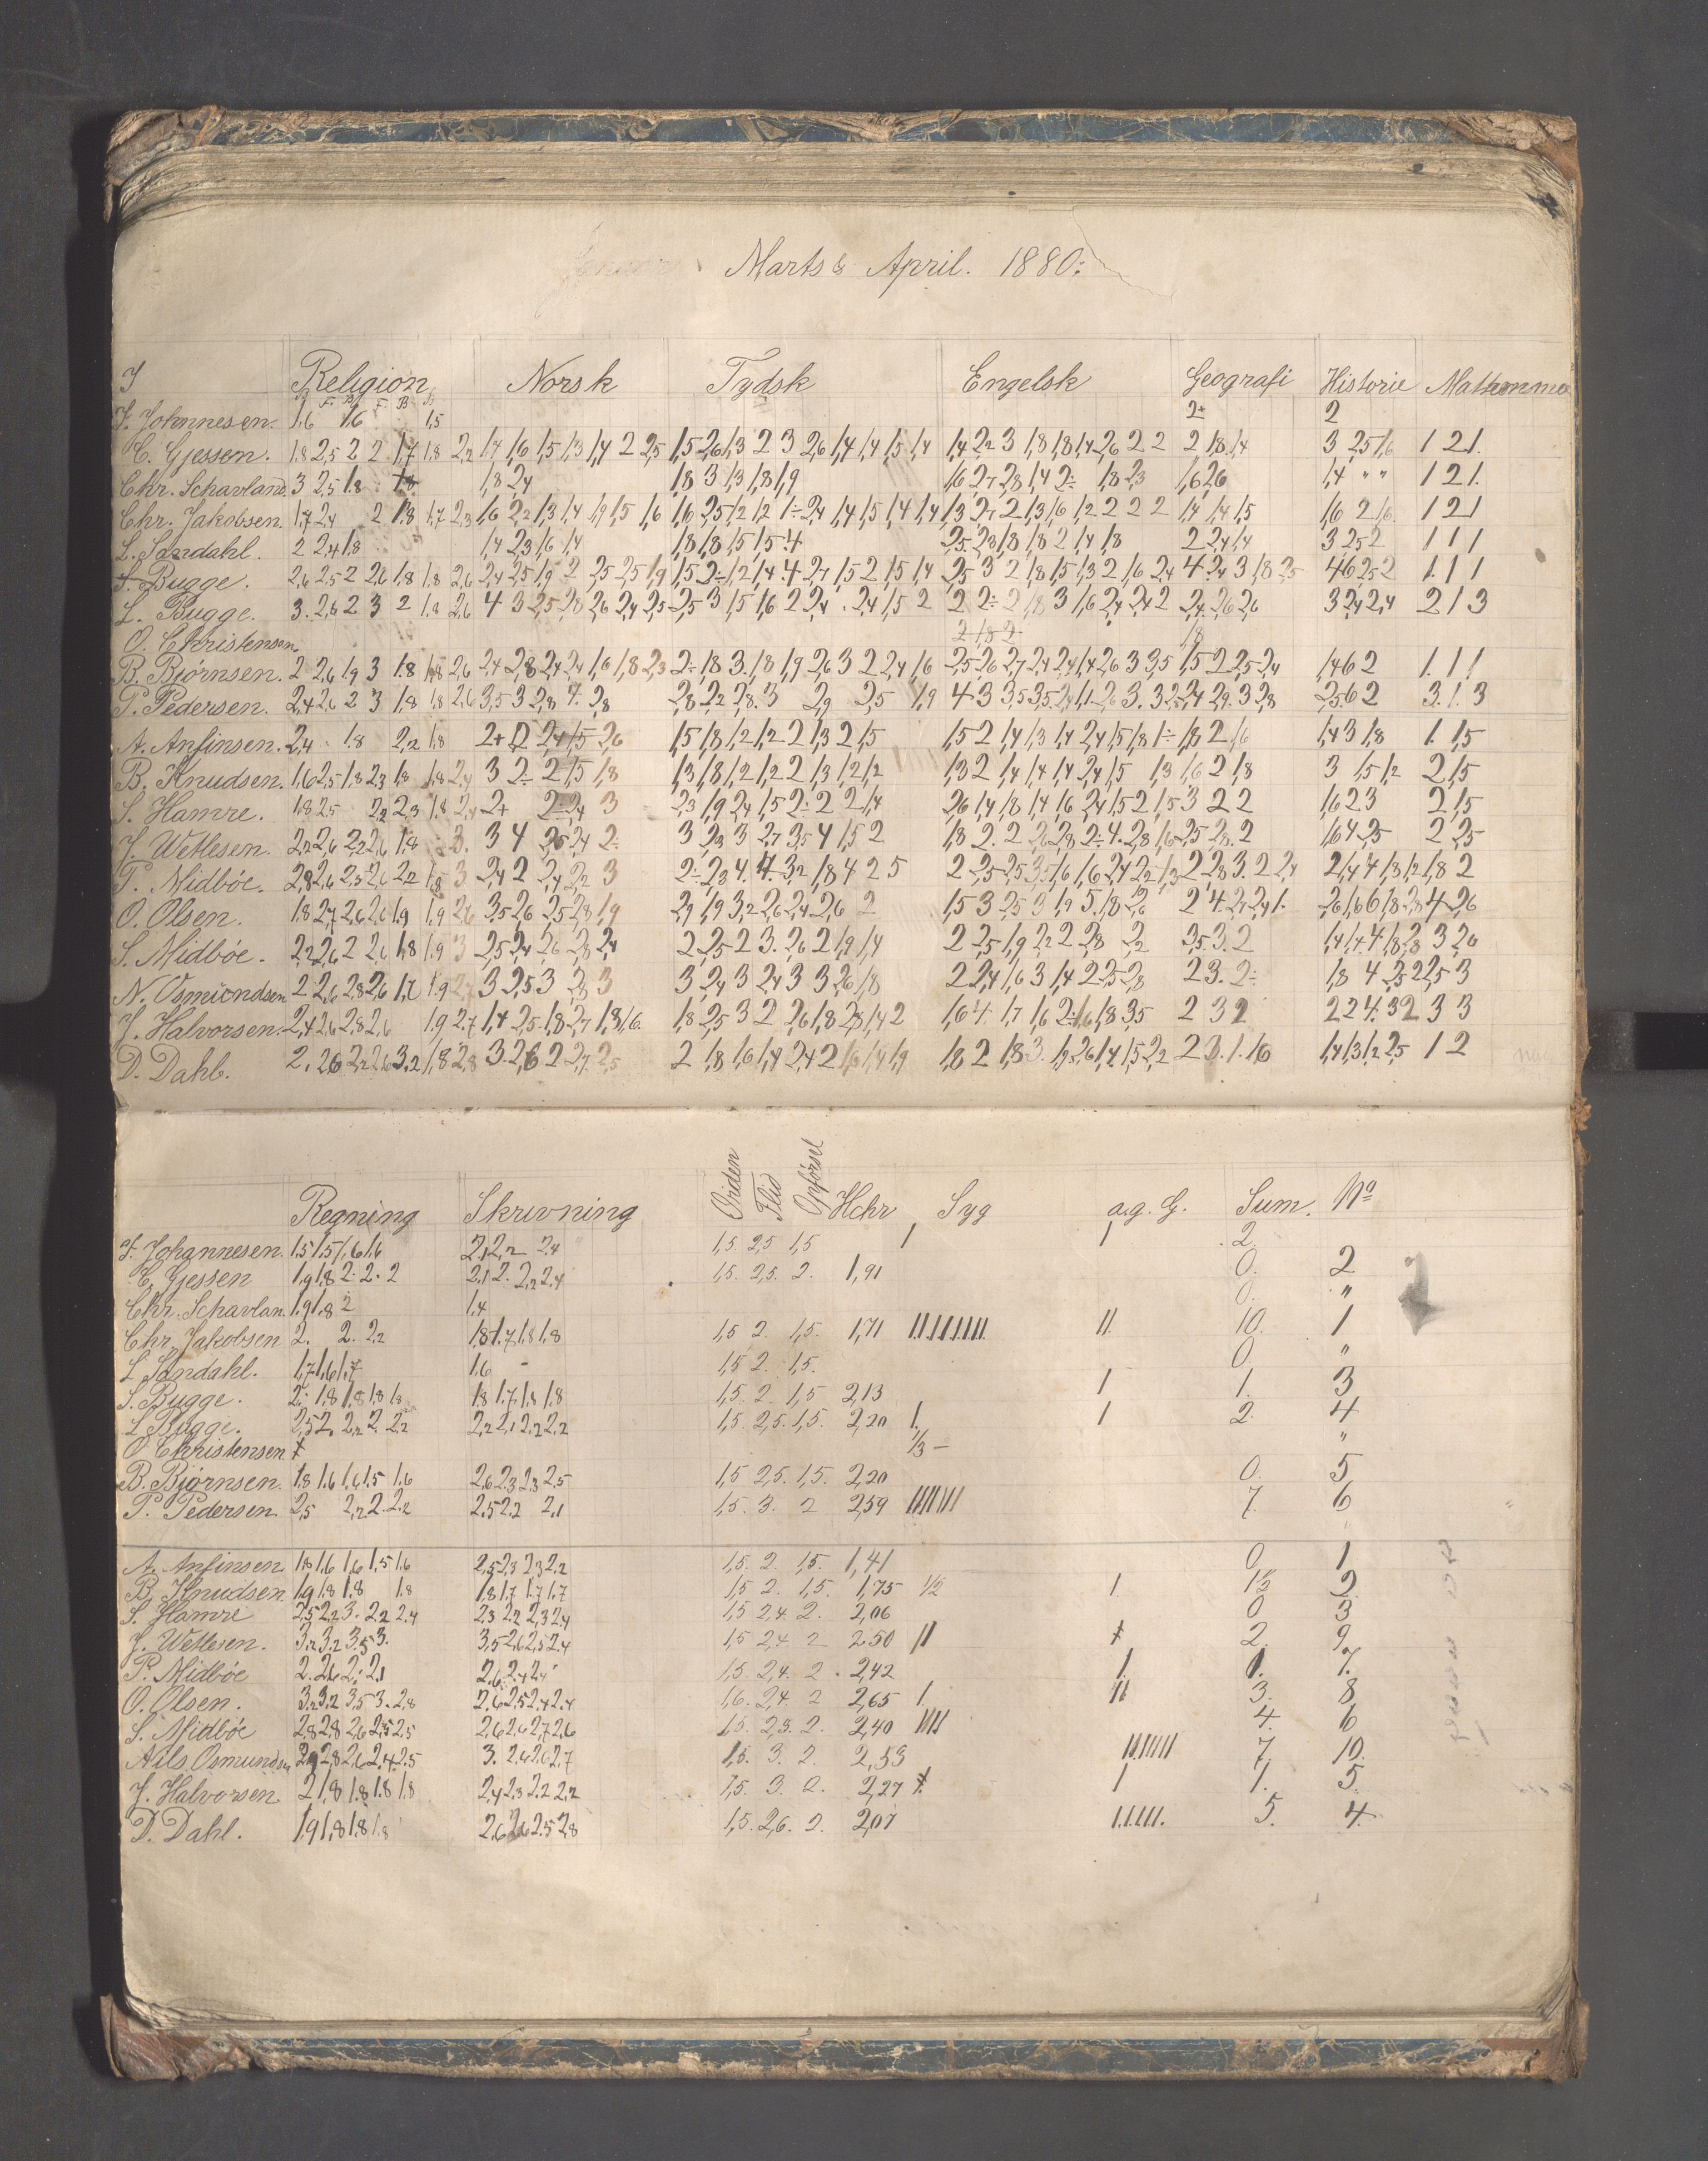 Marts & April. 1880:
I Religion Norsk Tydsk Engelsk Geografi Historie Mathemma
B. F. B. F B B
F. Johnnesen. 1,6 1,6 1,5 2+ 2
C. Gjessen. 1,8 2,5 2 2 1,7 1,8 2,2 1,7 1,6 1,5 1,3 1,4 2 2,5 1,5 2,6 1,3 2 3 2,6 1,4 1,4 1,5 1,4 1,4 2,2 3 1,8 1,8 1,4 2,6 2 2 2 1,8 1,4 3 2,5 1,6 1 2 1.
Chr. Schavland. 3 2,5 1,8 1,8 1,8 2,4 1,8 3 1,3 1,8 1,9 1,6 2,7 2,8 1,4 2÷ 1,8 2,3 1,6 2,6 1,4 " " 1 2 1.
Chr. Jakobsen. 1,7 2,4 2 1,8 1,7 2,3 1,6 2,2 1,3 1,4 1,9 1,5 1,6 1,6 2,5 1,2 1,2 1÷ 2,4 1,4 1,5 1,4 1,4 1,3 2,7 2 1,3 1,6 1,2 2 2 2 1,4 1,4 1,5 1,6 2 1,6 1 2 1
L. Sandahl. 2 2,4 1,8 1,4 2,3 1,6 1,4 1,8 1,8 1,5 1,5 4 2,5 2,8 1,8 1,8 2 1,4 1,8 2 2,4 1,4 3 2,5 2 1 1 1
S. Bugge. 2,6 2,5 2 2,6 1,8 1,8 2,6 2,4 2,5 1,9 2 2,5 2,5 1,9 1,5 2÷ 1,2 1,4 4 2,7 1,5 2 1,5 1,4 2,5 3 2 1,8 1,5 1,3 2 1,6 2,4 4 2,4 3 1,8 2,5 4 6 2,5 2 1. 1 1
L. Bugge. 3. 2,6 2 3 2 1,8 2,6 4 3 2,5 2,8 2,6 2,4 2,5 2,5 3 1,5 1,6 2 2,4 . 2,4 1,5 2 2 2÷ 2 1,8 3 1,6 2,4 2,4 2 2,4 2,6 2,6 3 2,4 2,4 2 1 3
O. Christensen 2 1,8 2 1,8
B. Bjørnsen. 2 2,6 1,9 3 1,8 1,8 2,6 2,4 2,8 2,4 2,4 1,6 1,8 2,3 2÷ 1,8 3. 1,8 1,9 2,6 3 2 2,4 1,6 2,5 2,6 2,7 2,4 2,4 1,4 2,6 3 3,5 1,5 2 2,5 2,4 1,4 6 2 1. 1 1
P. Pedersen. 2,4 2,6 2 3 1,8 1,8 2,6 3,5 3 2,8 4. 2,8 2,8 2,2 2,8. 3 2,9 2,5 1,9 2,5 6 2 3. 1. 3
A. Anfinsen. 2,4 1,8 2,2 1,8 2+ 2 2,4 1,5 2,6 1,5 1,8 1,2 1,2 2 1,3 2 1,5 1,5 2 1,4 1,3 1,4 2,4 1,5 1,8 1÷ 1,8 2 1,6 1,4 3 1,8 1. 1,5
B. Knudsen. 1,6 2,5 1,8 2,3 1,8 1,8 2,4 3 2÷ 2 1,5 1,8 1,3 1,8 1,2 1,2 2 1,3 1,2 1,2 1,3 2 1,4 1,4 1,4 2,4 1,5 1,3 1,6 2 1,8 3 1,5 1,2 2 1,5
S. Hamre. 1,8 2,5 2,2 2,3 1,8 2,4 2+ 2 2,4 3 2,3 1,9 2,4 1,5 2÷ 2 2 1,4 2,6 1,4 1,8 1,4 1,6 2,4 1,5 2 1,5 3 2 2 1,6 2 3 2 1,5
J. Wetlesen. 2,2 2,6 2,2 2,6 1,8 3. 3 4 2,5 2,4 2÷ 3 2,3 3 2,7 3,5 4 1,5 2 1,8 2. 2 2,6 2,8 2÷ 4. 2,8 1,6 2,5 2,8. 2 1,6 4 2,5 2 2,5
P. Midbøe. 2,8 2,6 2,3 2,6 2,2 1,8 3 2,4 2 2,4 2,2 3 2÷ 2,3 4. 4 3,2 1,8 4 2 5 2 2,5 2,5 3,5 1,6 1,6 2,4 2,2 1,3 2 2,8 3. 2 2,4 2 1,4 4 1,8 1,2 1,8 2
O. Olsen. 1,8 2,7 2,6 2,6 1,9 1,9 2,6 3,5 2,6 2,5 2,8 1,9 2,9 1,9 3,2 2,6 2,4 2,6 2 1,5 3 2,5 3 1,9 5 1,8 2,6 2 4. 2,7 2,4 1. 2,6 1,6 6 1,8 2,8 4 2,6
S. Midbøe. 2,2 2,6 2 2,6 1,8 1,9 3 2,5 2,4 2,6 2,8 2,4 2 2,5 2 3. 2,6 2 1,9 1,4 2 2,5 1,9 2,2 2 2,8 2,2 3,5. 3. 2 1,4 1,4 4 1,8 2,8 3 2,6
N. Osmundsen 2 2,6 2,8 2,6 1,7 1,9 2,7 3 2,5 3 2,8 3 3 2,4 3 2,4 3 3 2,6 1,8 2 2,4 1,6 3 1,4 2 2,5 2,8 2 3. 2÷ 1,8 4 2,5 2 2,5 3
J. Halvorsen. 2,4 2,6 2,8 2,6 1,9 2,7 1,4 2,5 1,8 2,7 1,8 1,6. 1,8 2,5 3 2 2,6 1,8 2,8 1,4 2 1,6 4. 1,7 1,6 2 1,6 1,8 3,5 2 3 2 2 2 4. 3 2 3 3
D. Dahl. 2. 2,6 2,2 2,6 3,2 1,8 2,8 3. 2,6 2 2,7. 2,5 2 1,8 1,6 1,4 2,4 2 1,6 1,4 1,9 1,8 2 1,8 3. 1,9 2,6 1,4 1,5 2,2 2 3. 1. 1,6 1,4 1,3 1,2 2,5 1 2
Regning Skrivning Orden Flid Opførsel Hchr Syg a.g. G. Sum. No
F. Johannesen. 1,5 1,5 1,6 1,6 2,1 2,2 2,4 1,5. 2,5 1,5 | | 2.
C. Gjessen 1,9 1,8 2. 2. 2 2,1 2. 2,2 2,4 1,5. 2,5. 2. 1,91 0. 2
Chr. Schavlan. 1,9 1,8 2 1,4 0. "
Chr. Jakobsen 2. 2. 2,2 1,8 1,7 1,8 1,8 1,5 2. 1,5. 1,71 |||||||| || 10. 1
L Sandahl. 1,7 1,6 1,7 1,6 - 1,5 2. 1,5. 0. "
S. Bugge. 2. 1,8 1,8 1,8 1,8 1,8 1,7 1,8 1,8 1,5. 2. 1,5 2,13 | 1. 3
L Bugge. 2,5 2. 2,2 2. 2,2 2,2 2,1 2,2 2,2 1,5. 2,5. 1,5. 2,20 1. | 2. 4
O. Christensen ⨍ 1/3 - "
B. Bjørnsen. 1,8 1,6 1,6 1,5 1,6 2,6 2,3 2,3 2,5 1,5 2,5. 1,5. 2,20 0. 5
P. Pedersen. 2,5 2,2 2. 2,2 2,5 2,2 2,1 1,5. 3. 2 2,59 ||||||| 7. 6
A. Anfinsen. 1,8 1,6 1,6 1,5 1,6 2,5 2,3 2,3 2,2 1,5. 2. 1,5. 1,41 0. 1
B. Knudsen. 1,9 1,8 1,8 1,8 1,8 1,7 1,7 1,7 1,5 2. 1,5. 1,75 1/2 | 1½ 2.
S. Hamre 2,5 2,2 3. 2,2 2,4 2,3 2,2 2,3 2,4 1,5 2,4. 2. 2,06 0 3
J. Wetlesen. 3,2 3,2 3,5 3. 3,5 2,6 2,5 2,4 1,5 2,4. 2 2,50 || 2. 9.
P. Midbøe 2. 2,6 2. 2,1 2,6. 2,4 2,4 1,5. 2,4. 2. 2,42 1. 1. 7.
O. Olsen. 3,2 3,2 3,5 3. 2,8 2,6 2,5 2,4 2,4 1,6. 2,4. 2 2,65 1. || 3. 8.
S. Midbøe 2,8 2,8 2,6 2,5 2,5 2,6 2,6 2,7 2,6 1,5. 2,3. 2. 2,40 |||| 4. 6
Nils Osmundsen 2,9 2,8 2,6 2,4 2,5 3. 2,6 2,6 2,7 1,5. 3. 2. 2,53 ||||||| 7. 10.
J. Halvorsen. 2 1,8 1,8 1,8 1,8 2,4 2,3 2,2 2,2 1,5. 3. 2. 2,27 | 1. 5.
D. Dahl. 1,9 1,8 1,8 1,8 2,6 2,6 2,5 2,8 1,5. 2,6. 2. 2,07 |||||. 5. 4.